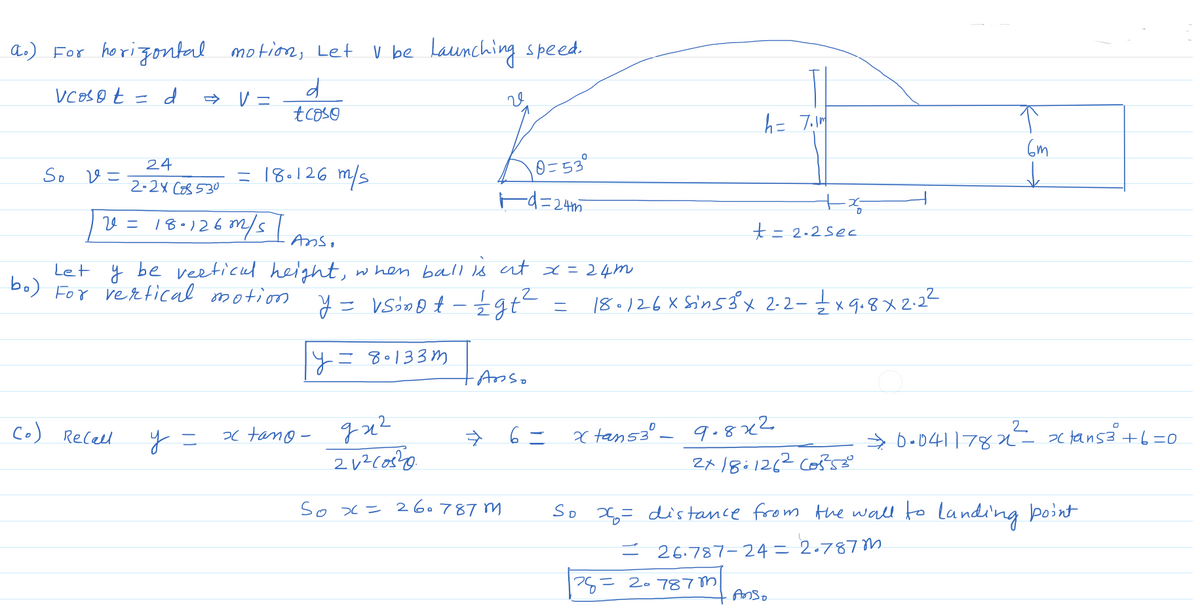 a.) For horizontal motion, Let v be launching speed.
vcosθ t = d ⇒ v = d / tcosθ
So v = 24 / 2.2x Cos 53° = 18.126 m/s
v = 18.126 m/s Ans.
v
θ = 53°
d = 24m
h = 7.1m
6m
x₀
t = 2.2 sec
b.) Let y be vertical height, when ball is at x = 24m
For vertical motion y = vSinθ t - 1/2 gt² = 18.126 x Sin53° x 2.2 - 1/2 x 9.8 x 2.2²
y = 8.133m Ans.
c.) Recall y = x tanθ - gx² / 2v²cos²θ. ⇒ 6 = x tan53° - 9.8x² / 2x 18.126² Cos²53° ⇒ 0.041178x² - x tan53° + 6 = 0
So x = 26.787 m So x₀ = distance from the wall to landing point
= 26.787 - 24 = 2.787 m
x₀ = 2.787 m Ans.